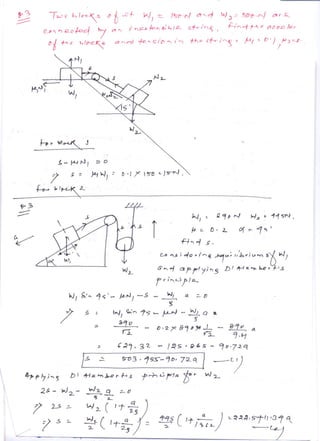 Q.3 Two blocks of wt W₁ = 150 N and W₂ = 500 N are
connected by an inextensible string. Find the
of the blocks and tension in the string. μ₁ = 0.1
N₁
S
S
μ₁N₁
W₁
N₂
μ₂N₂
45°
W₂
For block 1
S - μ₁N₁ = 0
⇒ S = μ₁W₁ = 0.1 × 150 = 15 N.
For block 2
Q.3
W₁ = 890 N W₂ = 445 N.
μ = 0.2 α = 45°
Find S.
Considering equilibrium of W₁
and applying D'Alembert's
principle
S
S
S
a
α
W₁
W₂
W₁ Sin 45° - μN₁ - S - W₁/g a = 0
⇒ S = W₁ Sin 45 - μN - W₁/g a
= 890/√2 - 0.2 × 890 × 1/√2 - 890/9.81 a
= 629.32 - 125.865 - 90.72a
S = 503.455 - 90.72a —(1)
Applying D'Alembert's principle for W₂
2S - W₂ - W₂a/2g = 0
⇒ 2S = W₂(1 + a/2g)
⇒ S = W₂/2 (1 + a/2g) = 445/2 (1 + a/19.62) = 222.5 + 11.34a